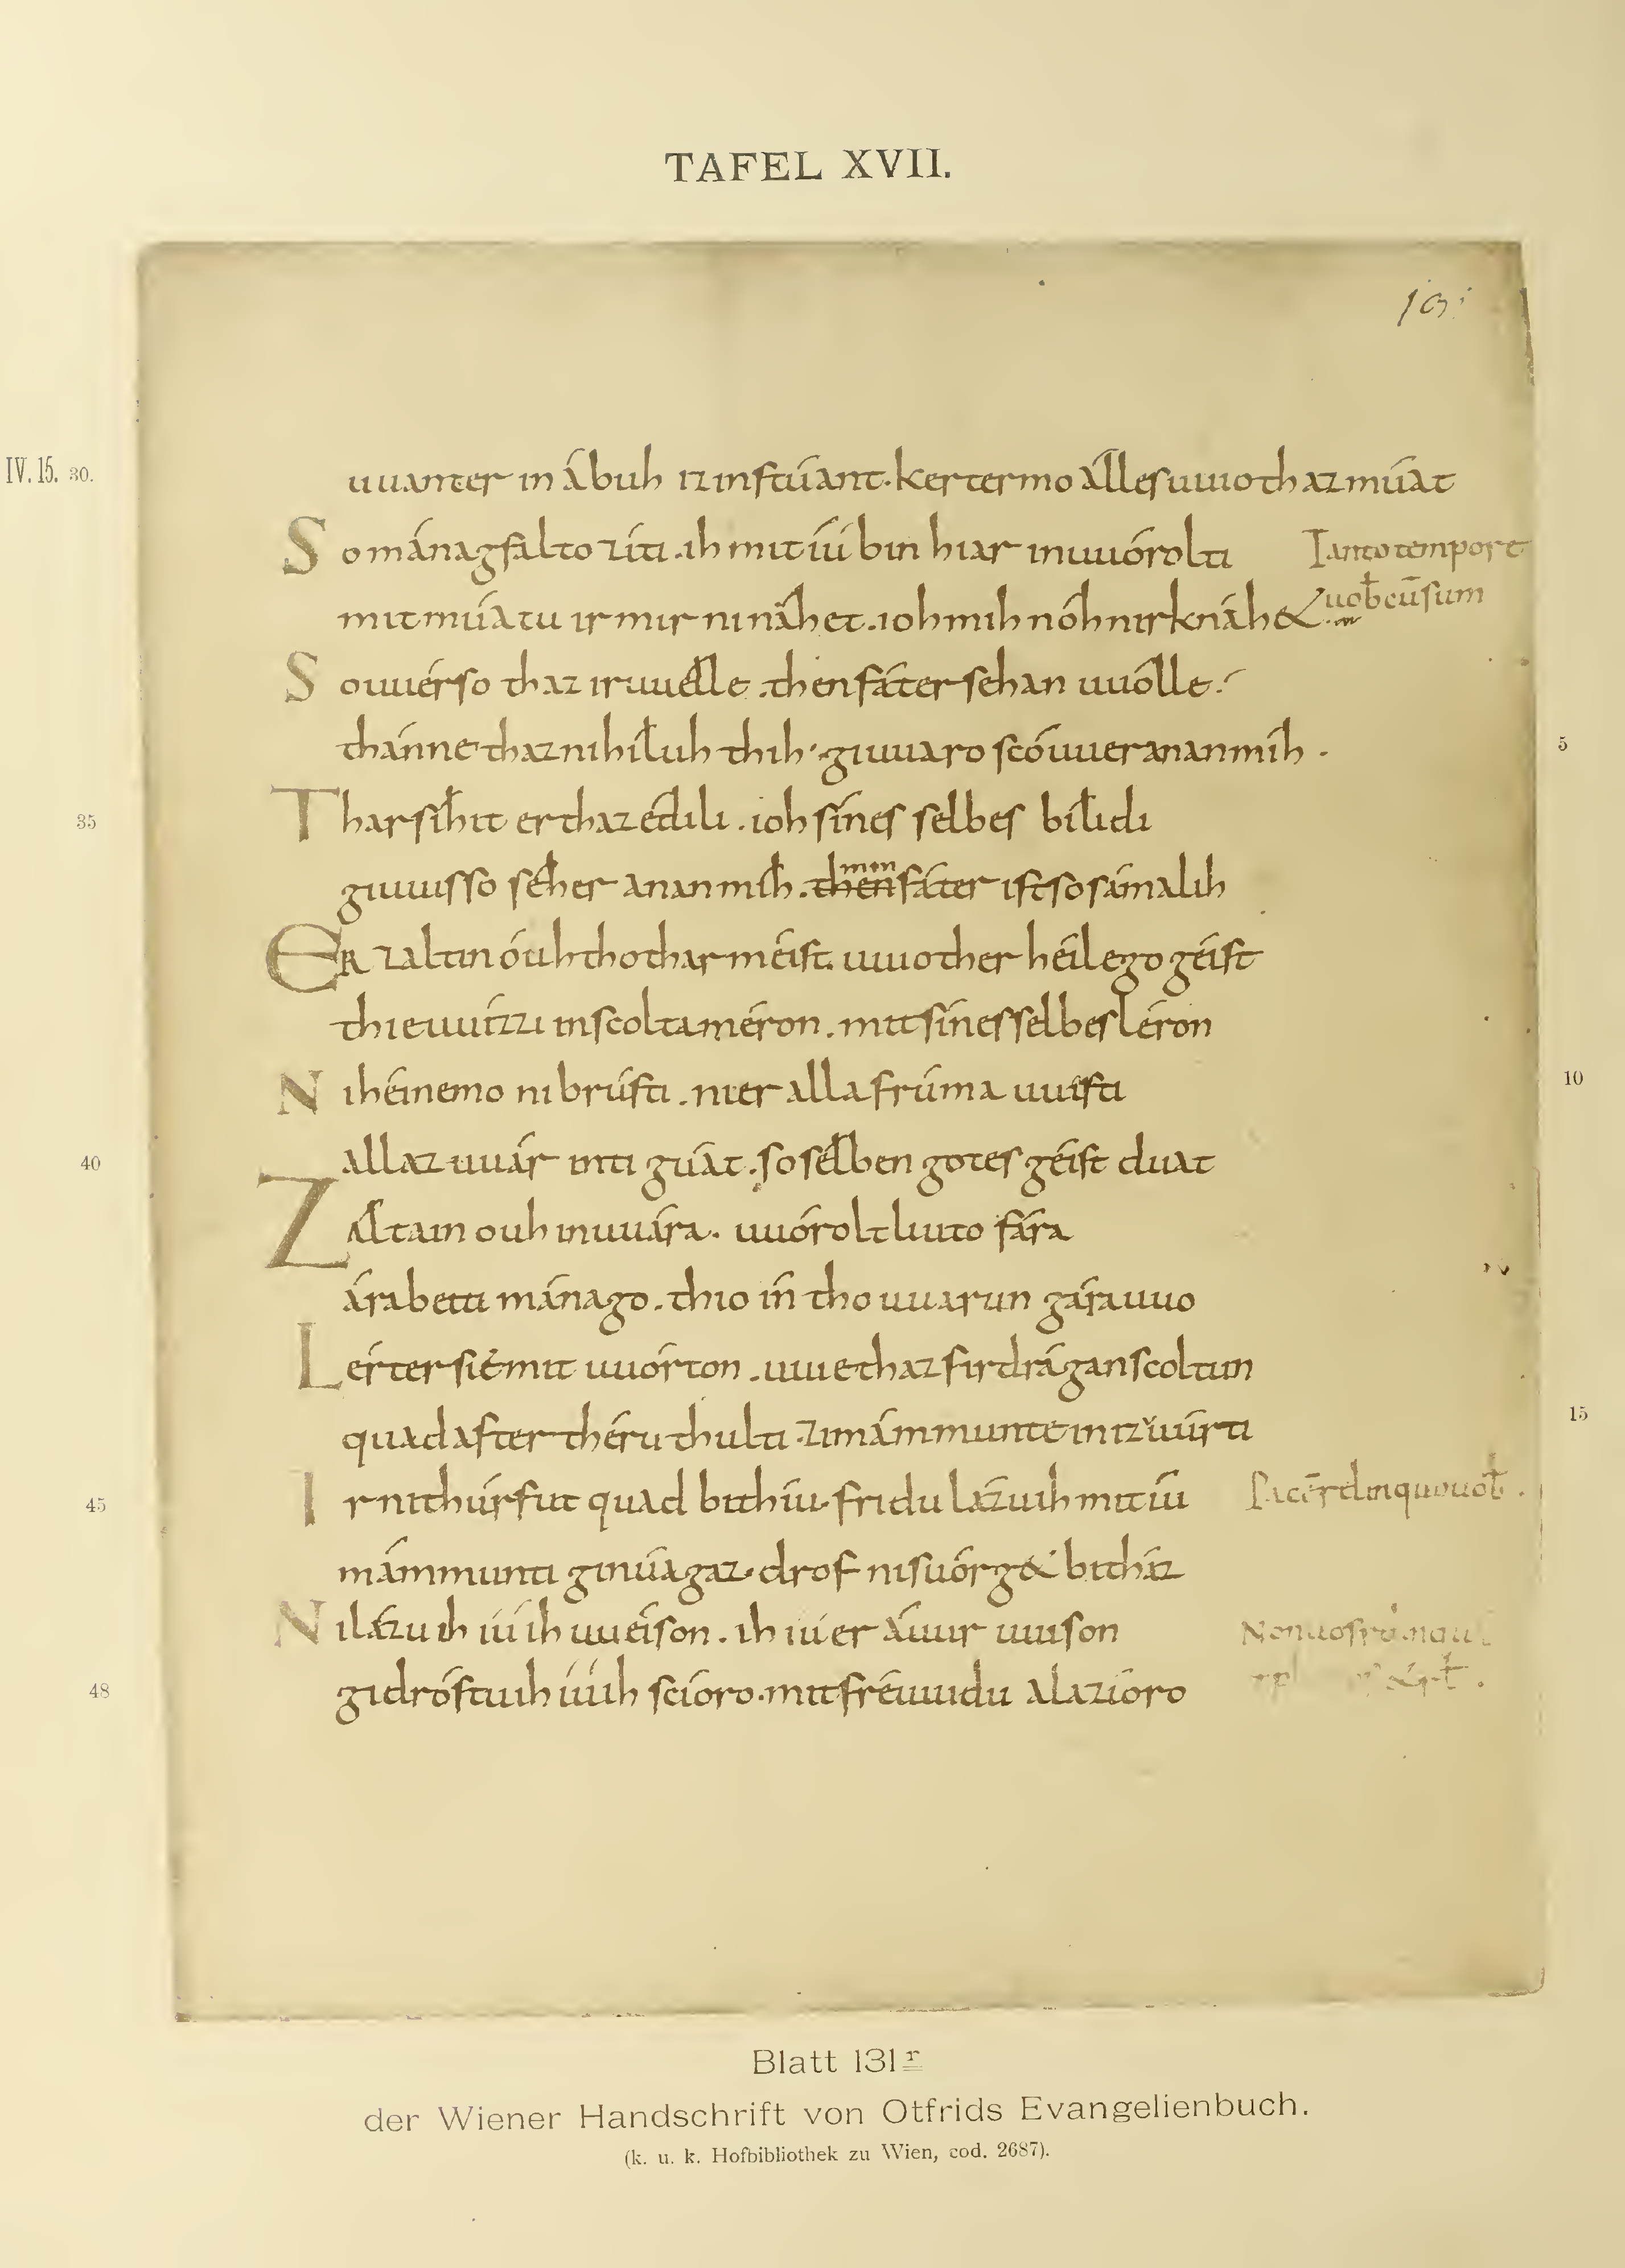 TAFEL XVII.
IV. 15. 30.
uuanter in ábuh iz instúant. kerter mo álles uuio thaz múat
So mánagfalto ziti. ih mit íu bin hiar in uuórolti
Tanto tempore
uob̄cū sum
mit múatu ir mir ni náhet. ioh mih nóh nirknáh&
So uuér so thaz iruuélle. then fáter sehan uuólle.
thánne thaz ni híluh thih. giuuaro scóuuer anan mih.
5
35
Thar síhit er thaz édili. ioh sínes selbes bílidi
min
giuuisso séher anan mih. then fáter ist so sámalih
ER zalt in óuh tho thar méist. uuio ther héilego géist
thie uuízzi in scolta méron. mit sínes selbes léron
Ni héinemo ni brústi. nier alla frúma uuísti
10
40
allaz uuár inti gúat. so sélben gotes géist duat
ZAlta in ouh in uuára. uuórolt liuto fára
árabeiti mánago. thio ín tho uuarun gárauuo
Lérter sié mit uuórton. uuie thaz firdrágan scoltun
quad after théru thulti zi mámmunte in iz uuúrti
15
45
Ir ni thúrfut quad bi thiu. fridu lázu ih mit íu
Pacē reĺinquo uob̄.
mámmunti ginúagaz. drof ni suórg& bi tház
Ni lázu ih íu ih uuéison. ih iu er áuur uuison
Non uos
48
gidróstu ih íuih scíoro. mit fréuuidu alazíoro
Blatt 131r
der Wiener Handschrift von Otfrids Evangelienbuch.
(k. u. k. Hofbibliothek zu Wien, cod. 2687).